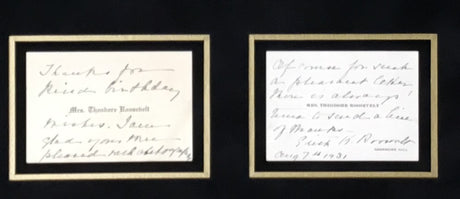 Thanks for
kind birthday
Mrs. Theodore Roosevelt.
wishes. I am
glad you are
pleased with photography
Of course for such
a pleasant letter
there is always
MRS. THEODORE ROOSEVELT
time to send a line
of thanks -
Edith K. Roosevelt
SAGAMORE HILL
Aug 7th 1931